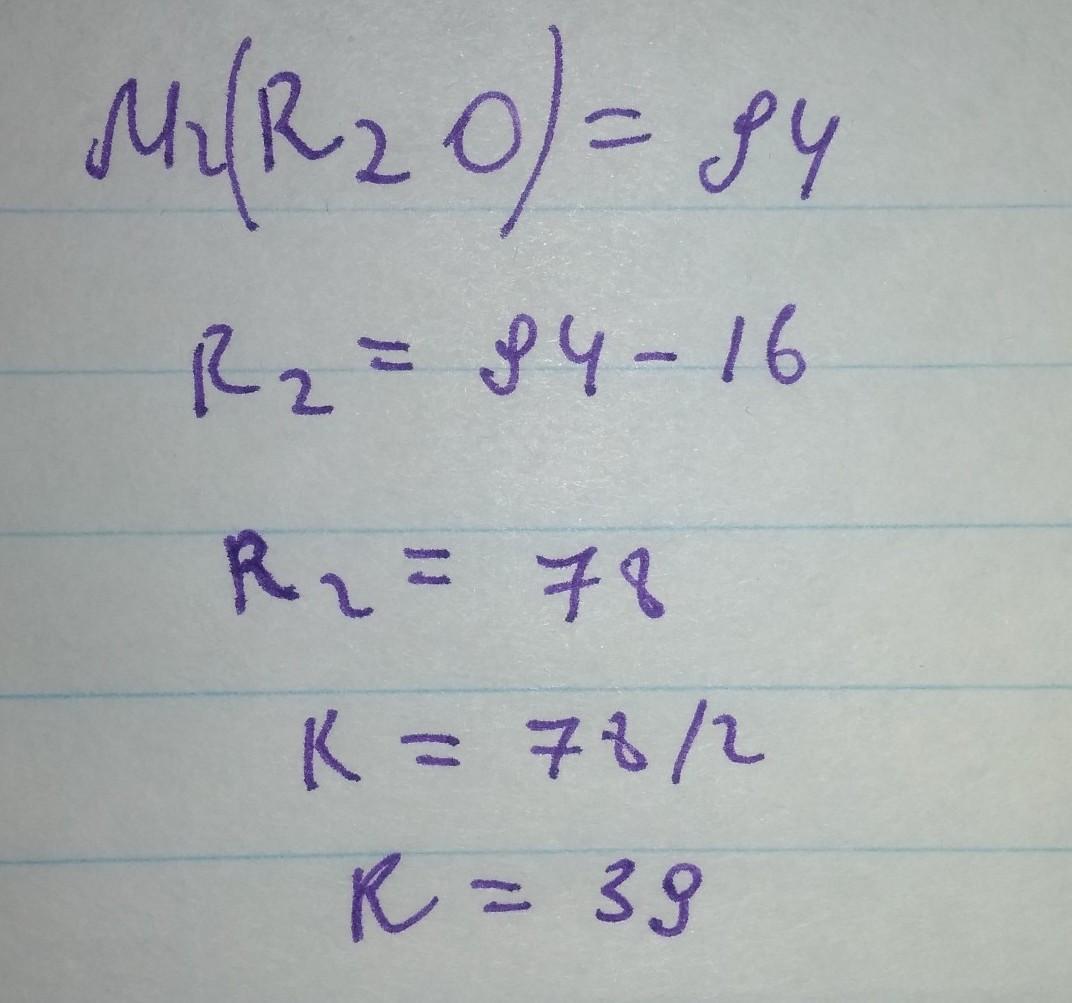 Mr(R2 O) = 94
R2 = 94 - 16
R2 = 78
K = 78/2
R = 39